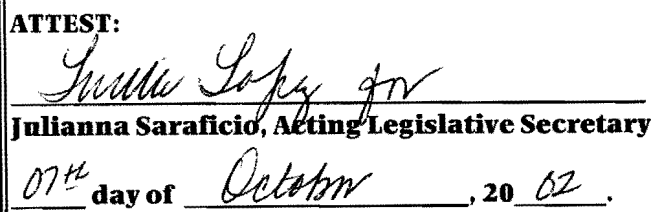 ATTEST:
Lopez for
Julianna Saraficio, Acting Legislative Secretary
07th day of October, 20 02.